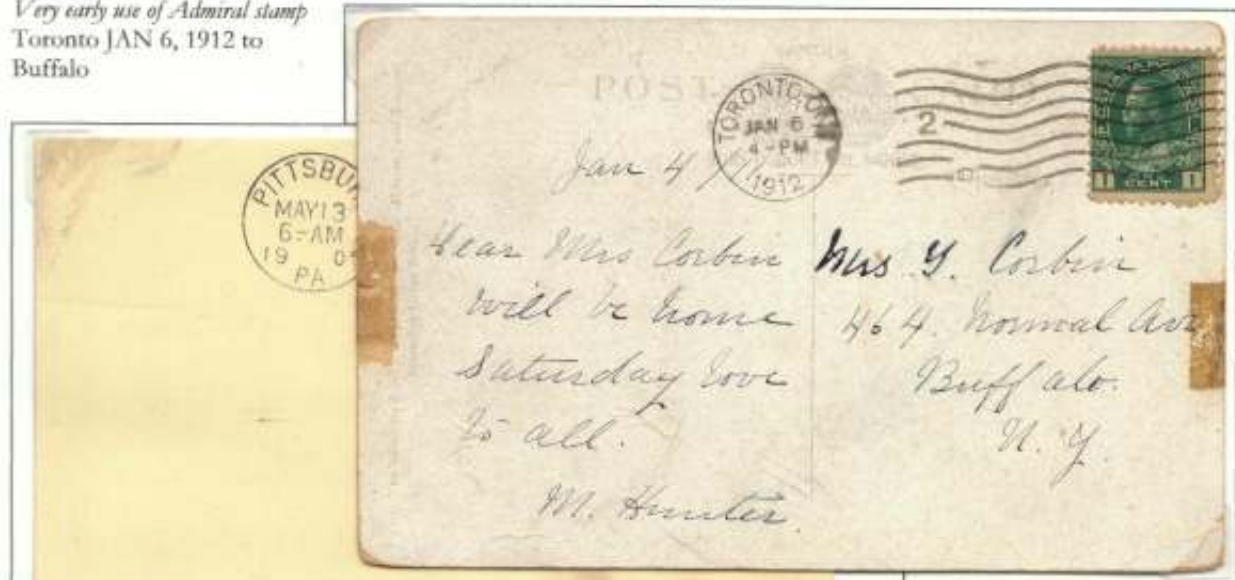 Very early use of Admiral stamp
Toronto JAN 6, 1912 to
Buffalo
PITTSBU
MAY 13
6-AM
19 0
PA
POST
TORONTO ON
JAN 6
4-PM
1912
2
1 CENT 1
Jan 4
Dear Mrs Corbin
will be home
Saturday love
to all.
M. Hunter.
Mrs. Y. Corbin
464. Normal Ave
Buffalo.
N. Y.